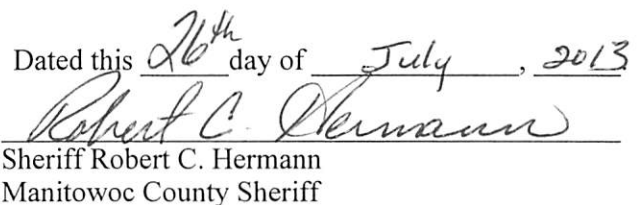 Dated this 26th day of July, 2013
Robert C. Hermann
Sheriff Robert C. Hermann
Manitowoc County Sheriff